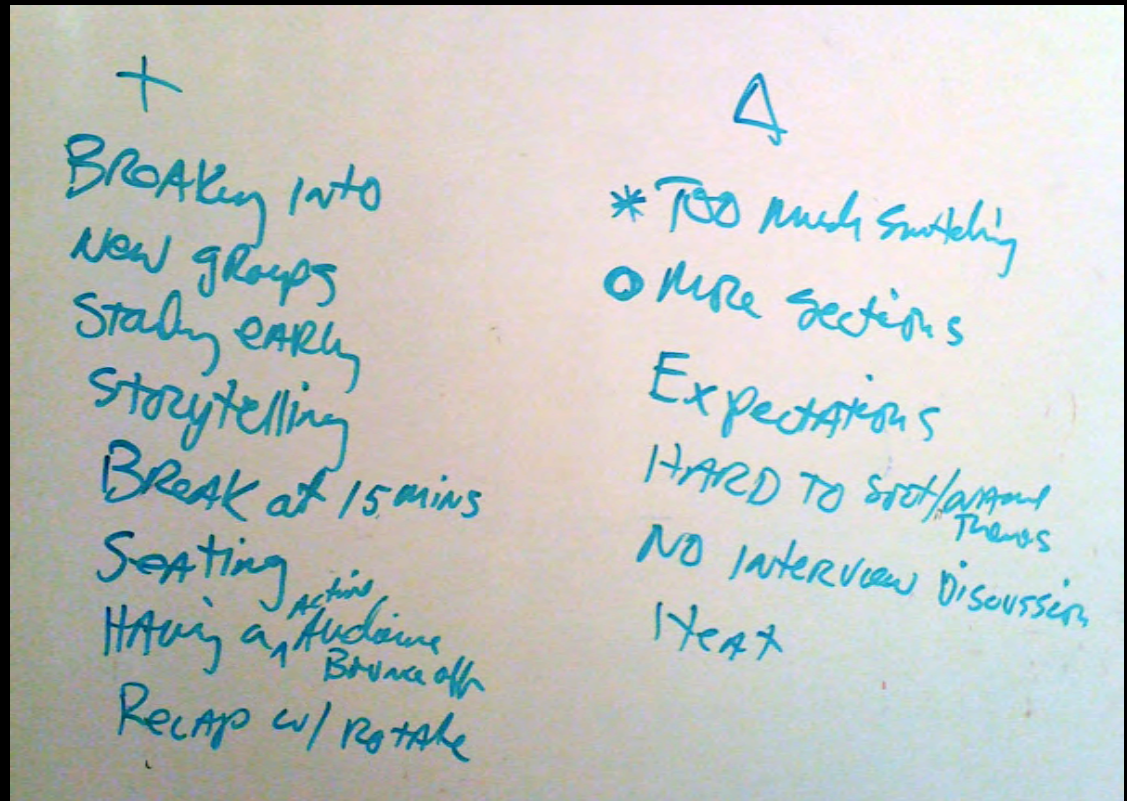 +
BREAKing into
New groups
Starting early
Storytelling
BREAK at 15 mins
Seating
Active
HAving a ^ Audience
Bounce off
Recap w/ Rotate
Δ
* Too much switching
O More sections
Expectations
HARD TO spot/
Themes
NO interview Discussion
Heat